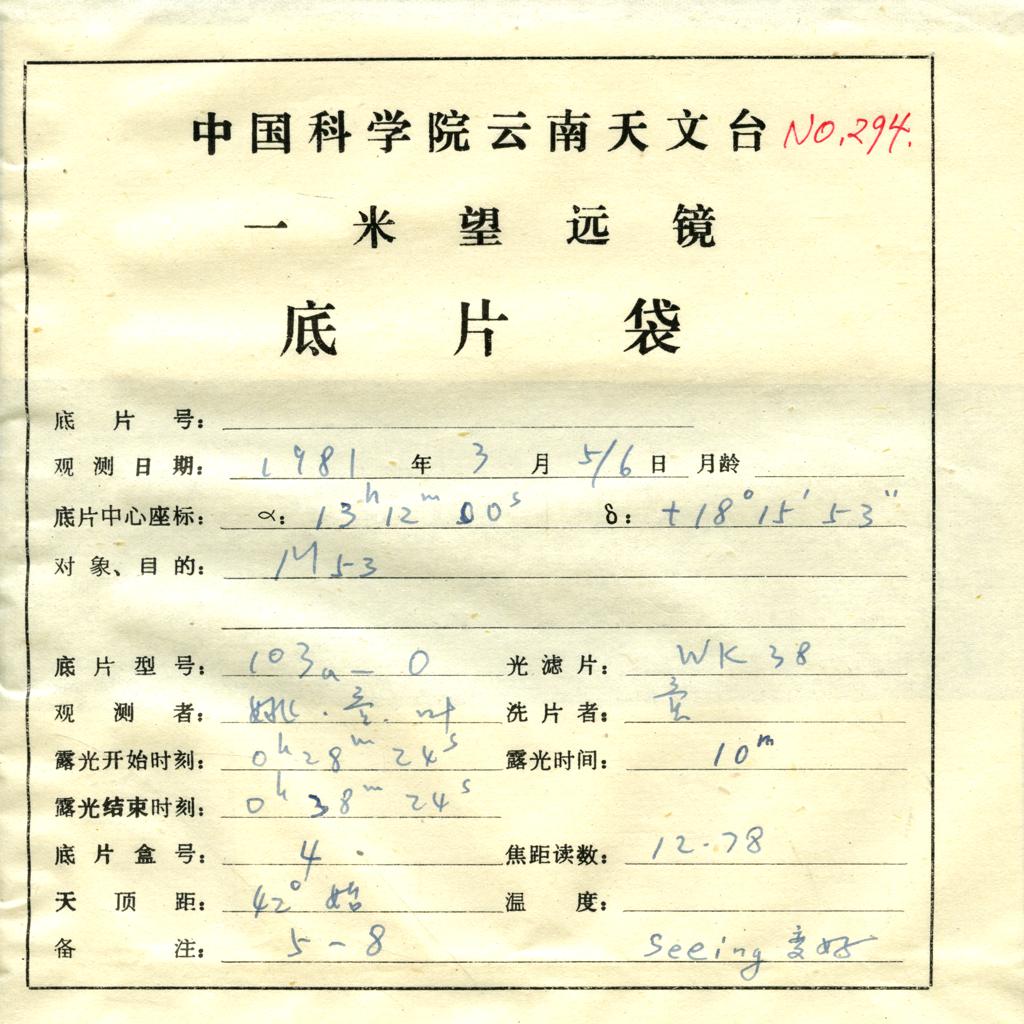 中国科学院云南天文台 NO.294.
一米望远镜
底片袋
底片号：
观测日期： 1981 年 3 月 5/6 日 月龄
底片中心座标： α： 13h 12m 00s δ： +18° 15′ 53″
对象、目的： M53
底片型号： 103a-O 光滤片： WK 38
观测者： 姚. . 叶 洗片者：
露光开始时刻： 0h 28m 24s 露光时间： 10m
露光结束时刻： 0h 38m 24s
底片盒号： 4. 焦距读数： 12.78
天顶距： 42° 始 温度：
备注： 5-8 seeing 变好